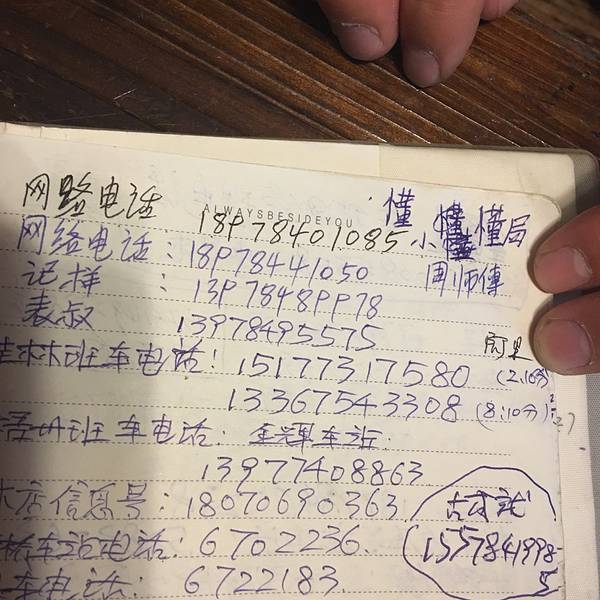 网路电话 18978401085
ALWAYSBESIDEYOU
懂 懂局
小
网络电话：18978441050 周师傅
记样：13978489978
表叔 13978495575
桂林班车电话：15177317580 (2.10分)
13367543308 (8:10分)
班车电话：金辉车站
13977408863
木店信息号：18070690363
车站电话：6702236.
车电话：6722183.
15578419985